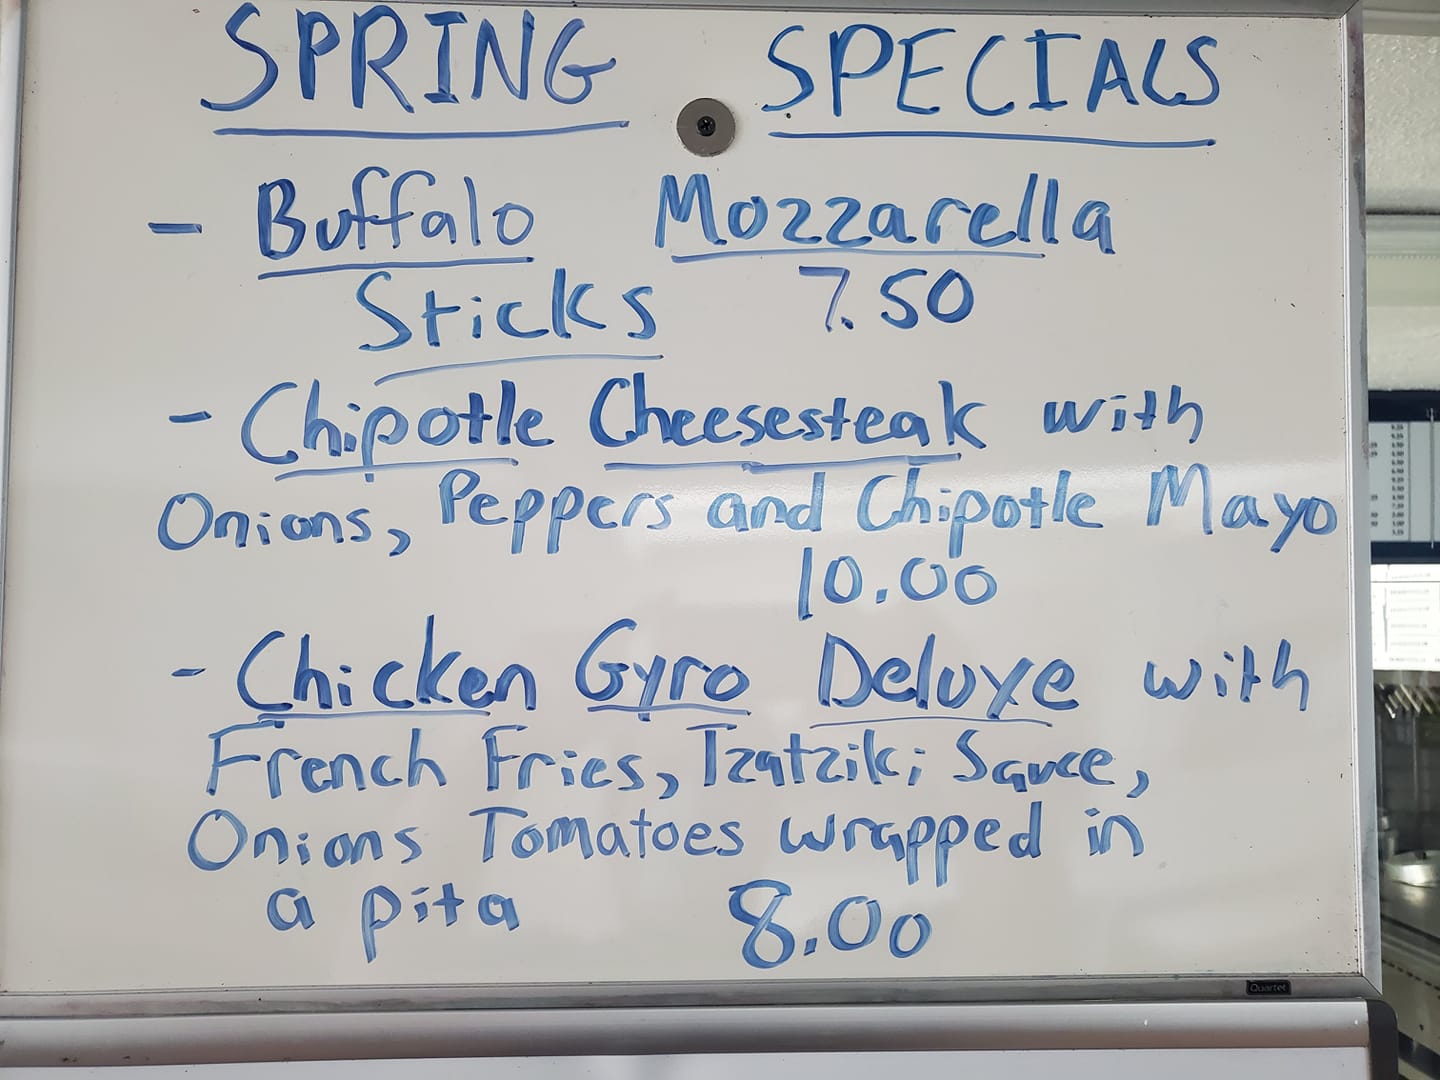 SPRING SPECIALS
- Buffalo Mozzarella
Sticks 7.50
- Chipotle Cheesesteak with
Onions, Peppers and Chipotle Mayo
10.00
- Chicken Gyro Deluxe with
French Fries, Tzatziki Sauce,
Onions Tomatoes wrapped in
a pita 8.00
Quartet